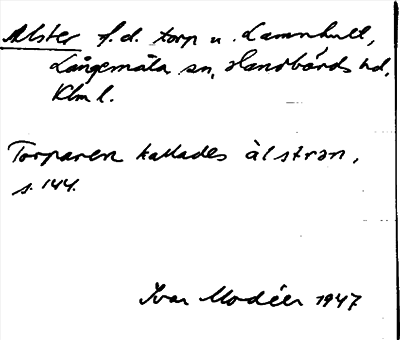 Alster f.d. torp u. Lammhult,
Långemåla sn, Handbörds hd,
Klm l.
Torparen kallades àlstrən,
s. 144.
Ivar Modéer 1947